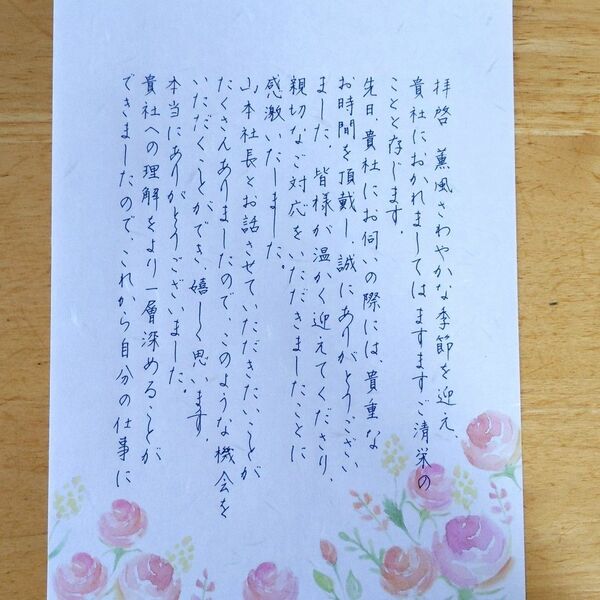 拝啓　薫風さわやかな季節を迎え、
貴社におかれましてはますますご清栄の
ことと存じます。
先日、貴社にお伺いの際には、貴重な
お時間を頂戴し、誠にありがとうござい
ました。皆様が温かく迎えてくださり、
親切なご対応をいただきましたことに
感激いたしました。
山本社長とお話させていただきたいことが
たくさんありましたので、このような機会を
いただくことができ、嬉しく思います。
本当にありがとうございました。
貴社への理解をより一層深めることが
できましたので、これから自分の仕事に